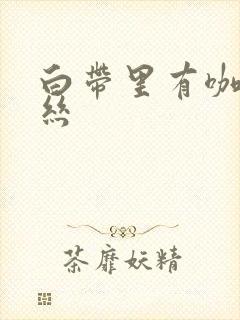 白带里有咖
丝
荼靡妖精